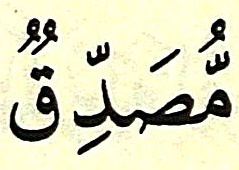 مُّصَدِّقٌ